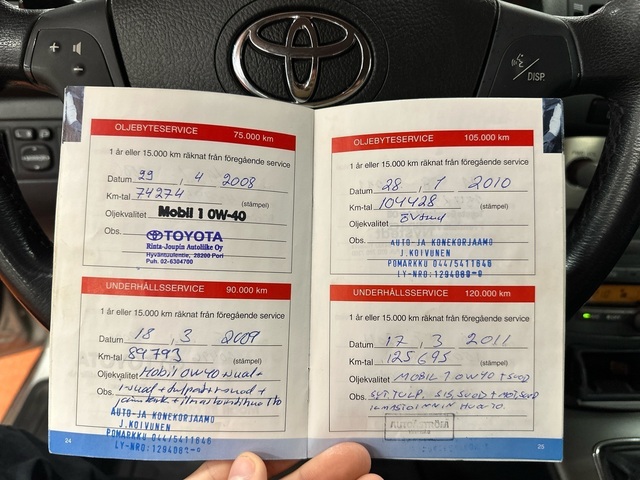 DISP.
OLJEBYTESERVICE 75.000 km
1 år eller 15.000 km räknat från föregående service
Datum 29 , 4 2008
Km-tal 74274
(stämpel)
Oljekvalitet Mobil 1 0W-40
Obs.
TOYOTA
Rinta-Joupin Autoliike Oy
Hyväntuulentie, 28200 Pori
Puh. 02-6304700
UNDERHÅLLSSERVICE 90.000 km
1 år eller 15.000 km räknat från föregående service
Datum 18 , 3 2009
Km-tal 89793
(stämpel)
Oljekvalitet Mobil 0W40
Obs.
AUTO-JA KONEKORJAAMO
J.KOIVUNEN
POMARKKU 044/5411646
24
OLJEBYTESERVICE 105.000 km
1 år eller 15.000 km räknat från föregående service
Datum 28 , 1 2010
Km-tal 104428
(stämpel)
Oljekvalitet
Obs.
AUTO-JA KONEKORJAAMO
J.KOIVUNEN
POMARKKU 044/5411646
UNDERHÅLLSSERVICE 120.000 km
1 år eller 15.000 km räknat från föregående service
Datum 17 , 3 2011
Km-tal 125695
(stämpel)
Oljekvalitet MOBIL 1 0W40 + SUOD
Obs.
25